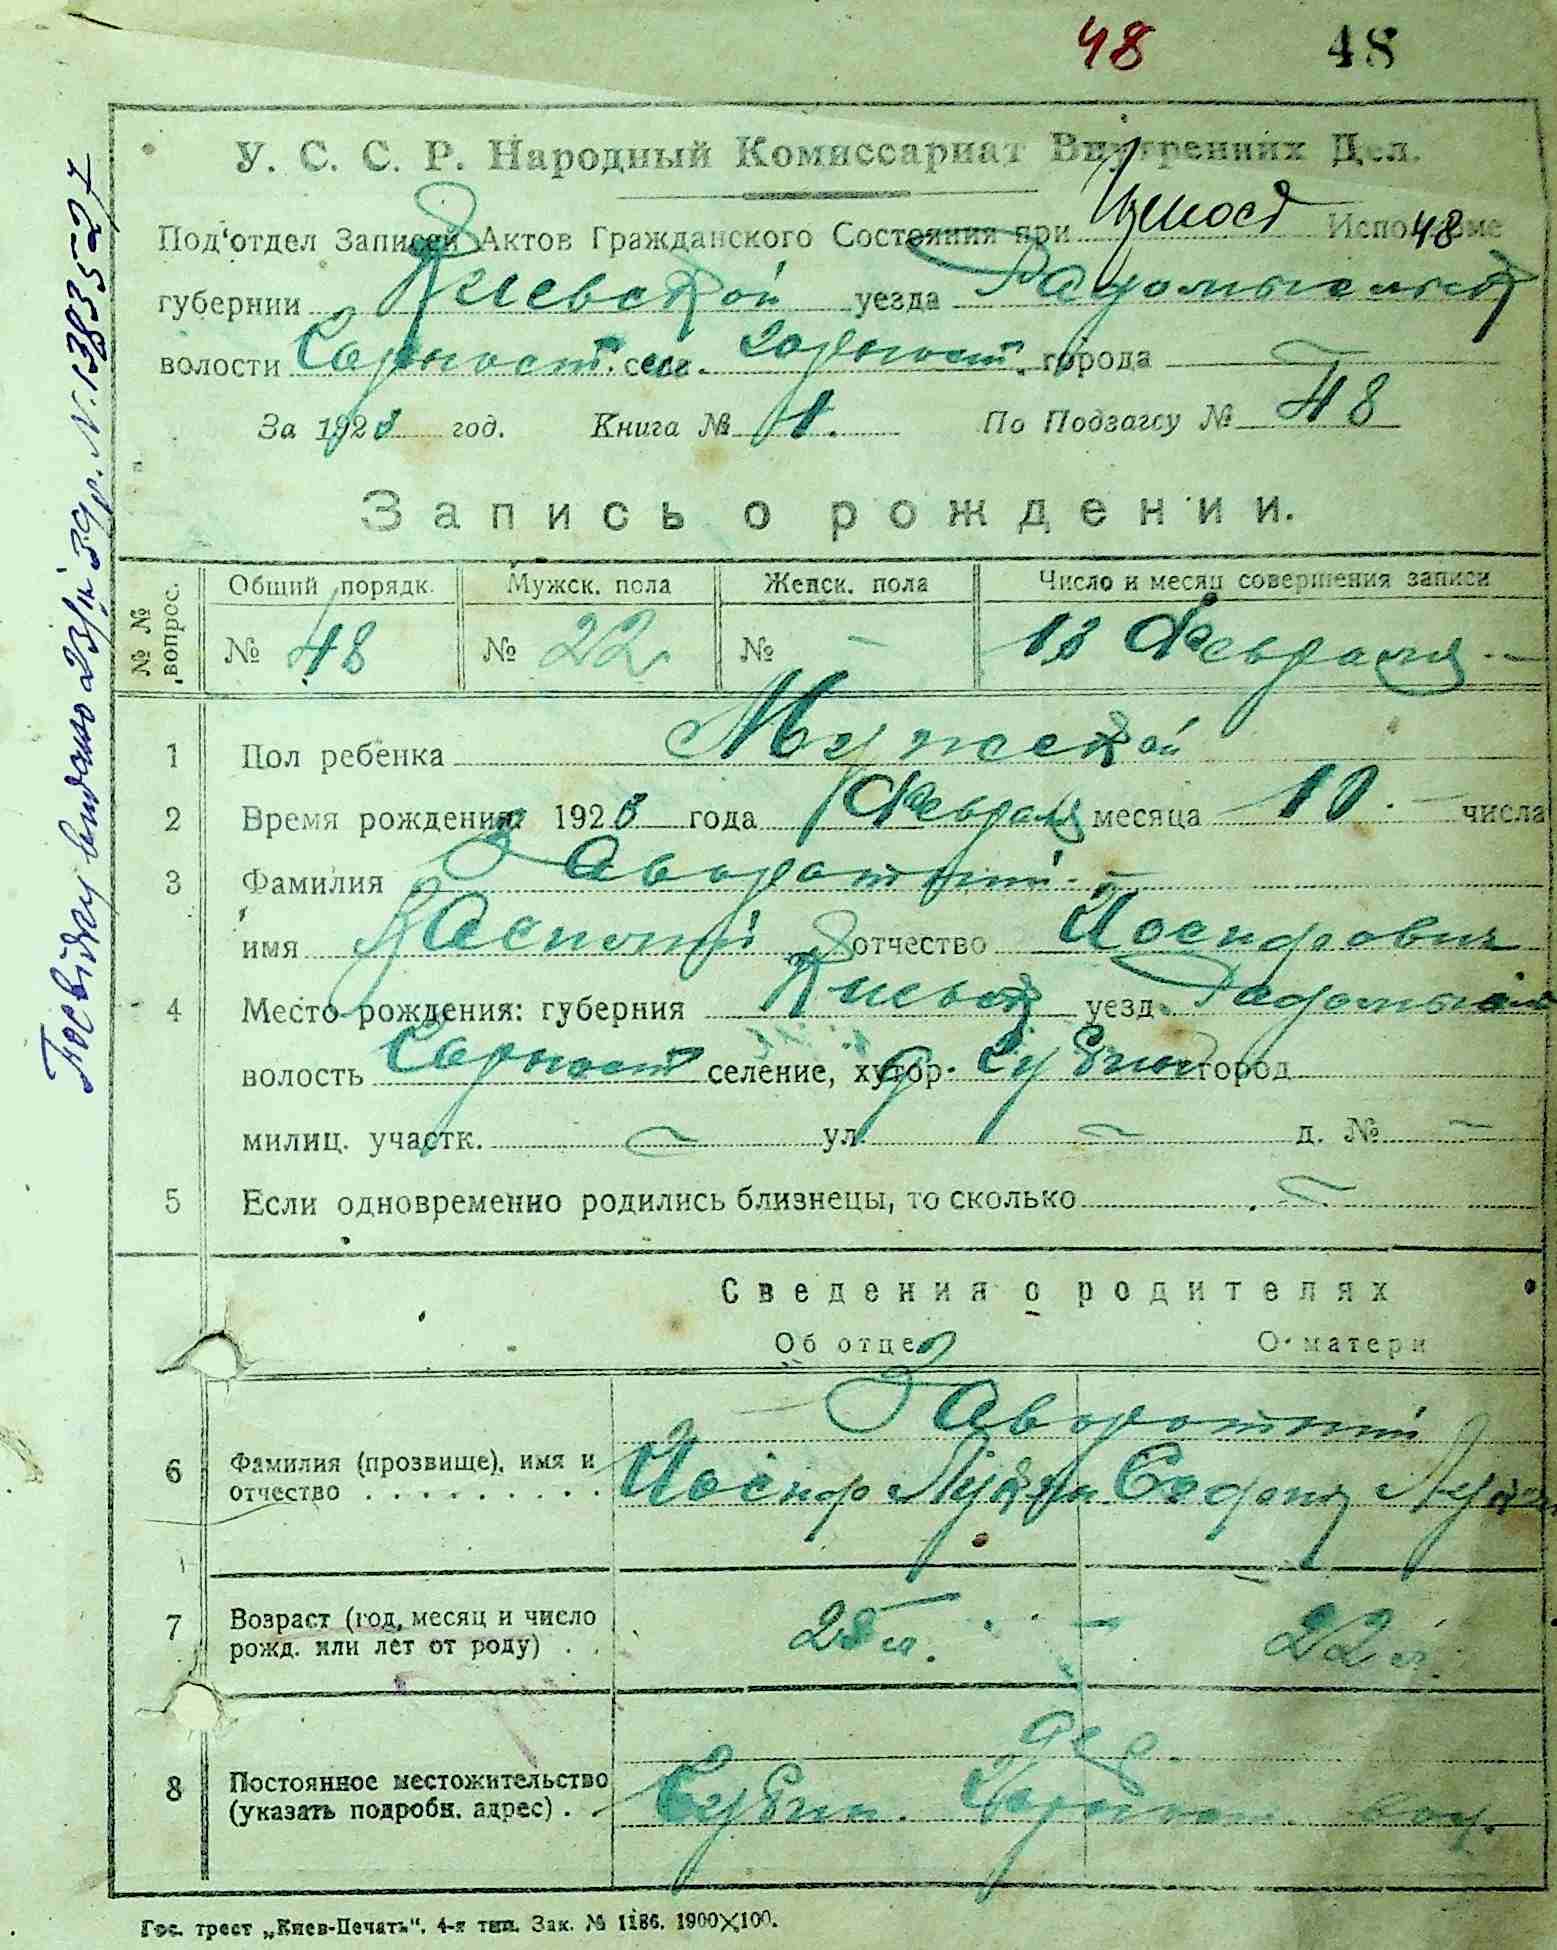 48 48
У. С. С. Р. Народный Комиссариат Внутренних Дел.
Под'отдел Записей Актов Гражданского Состояния при Испол 48 ме
губернии Киевской уезда Радомысльск
волости села города —
За 1923 год. Книга № 1. По Подзагсу № 48
Запись о рождении.
№ № вопрос. Общий порядк. Мужск. пола Женск. пола Число и месяц совершения записи
№ 48 № 22 № — 13 Февраля —
1 Пол ребенка Мужской
2 Время рождения: 1923 года Февраля месяца 10 числа
3 Фамилия Заворотний
имя отчество Иосифович
4 Место рождения: губерния Киевск уезд Радомысл
волость селение, хутор д. город
милиц. участк. — ул. — д. № —
5 Если одновременно родились близнецы, то сколько —
Сведения о родителях
Об отце О матери
Заворотний
6 Фамилия (прозвище), имя и
отчество Иосиф Лукян
7 Возраст (год, месяц и число
рожд. или лет от роду) 22 л.
дер.
8 Постоянное местожительство
(указать подробн. адрес) вол.
Гос. трест „Киев-Печать“, 4-я тип. Зак. № 1186. 1900×100.
Посвідку видано 23/III 39 р. N. 138 35-27